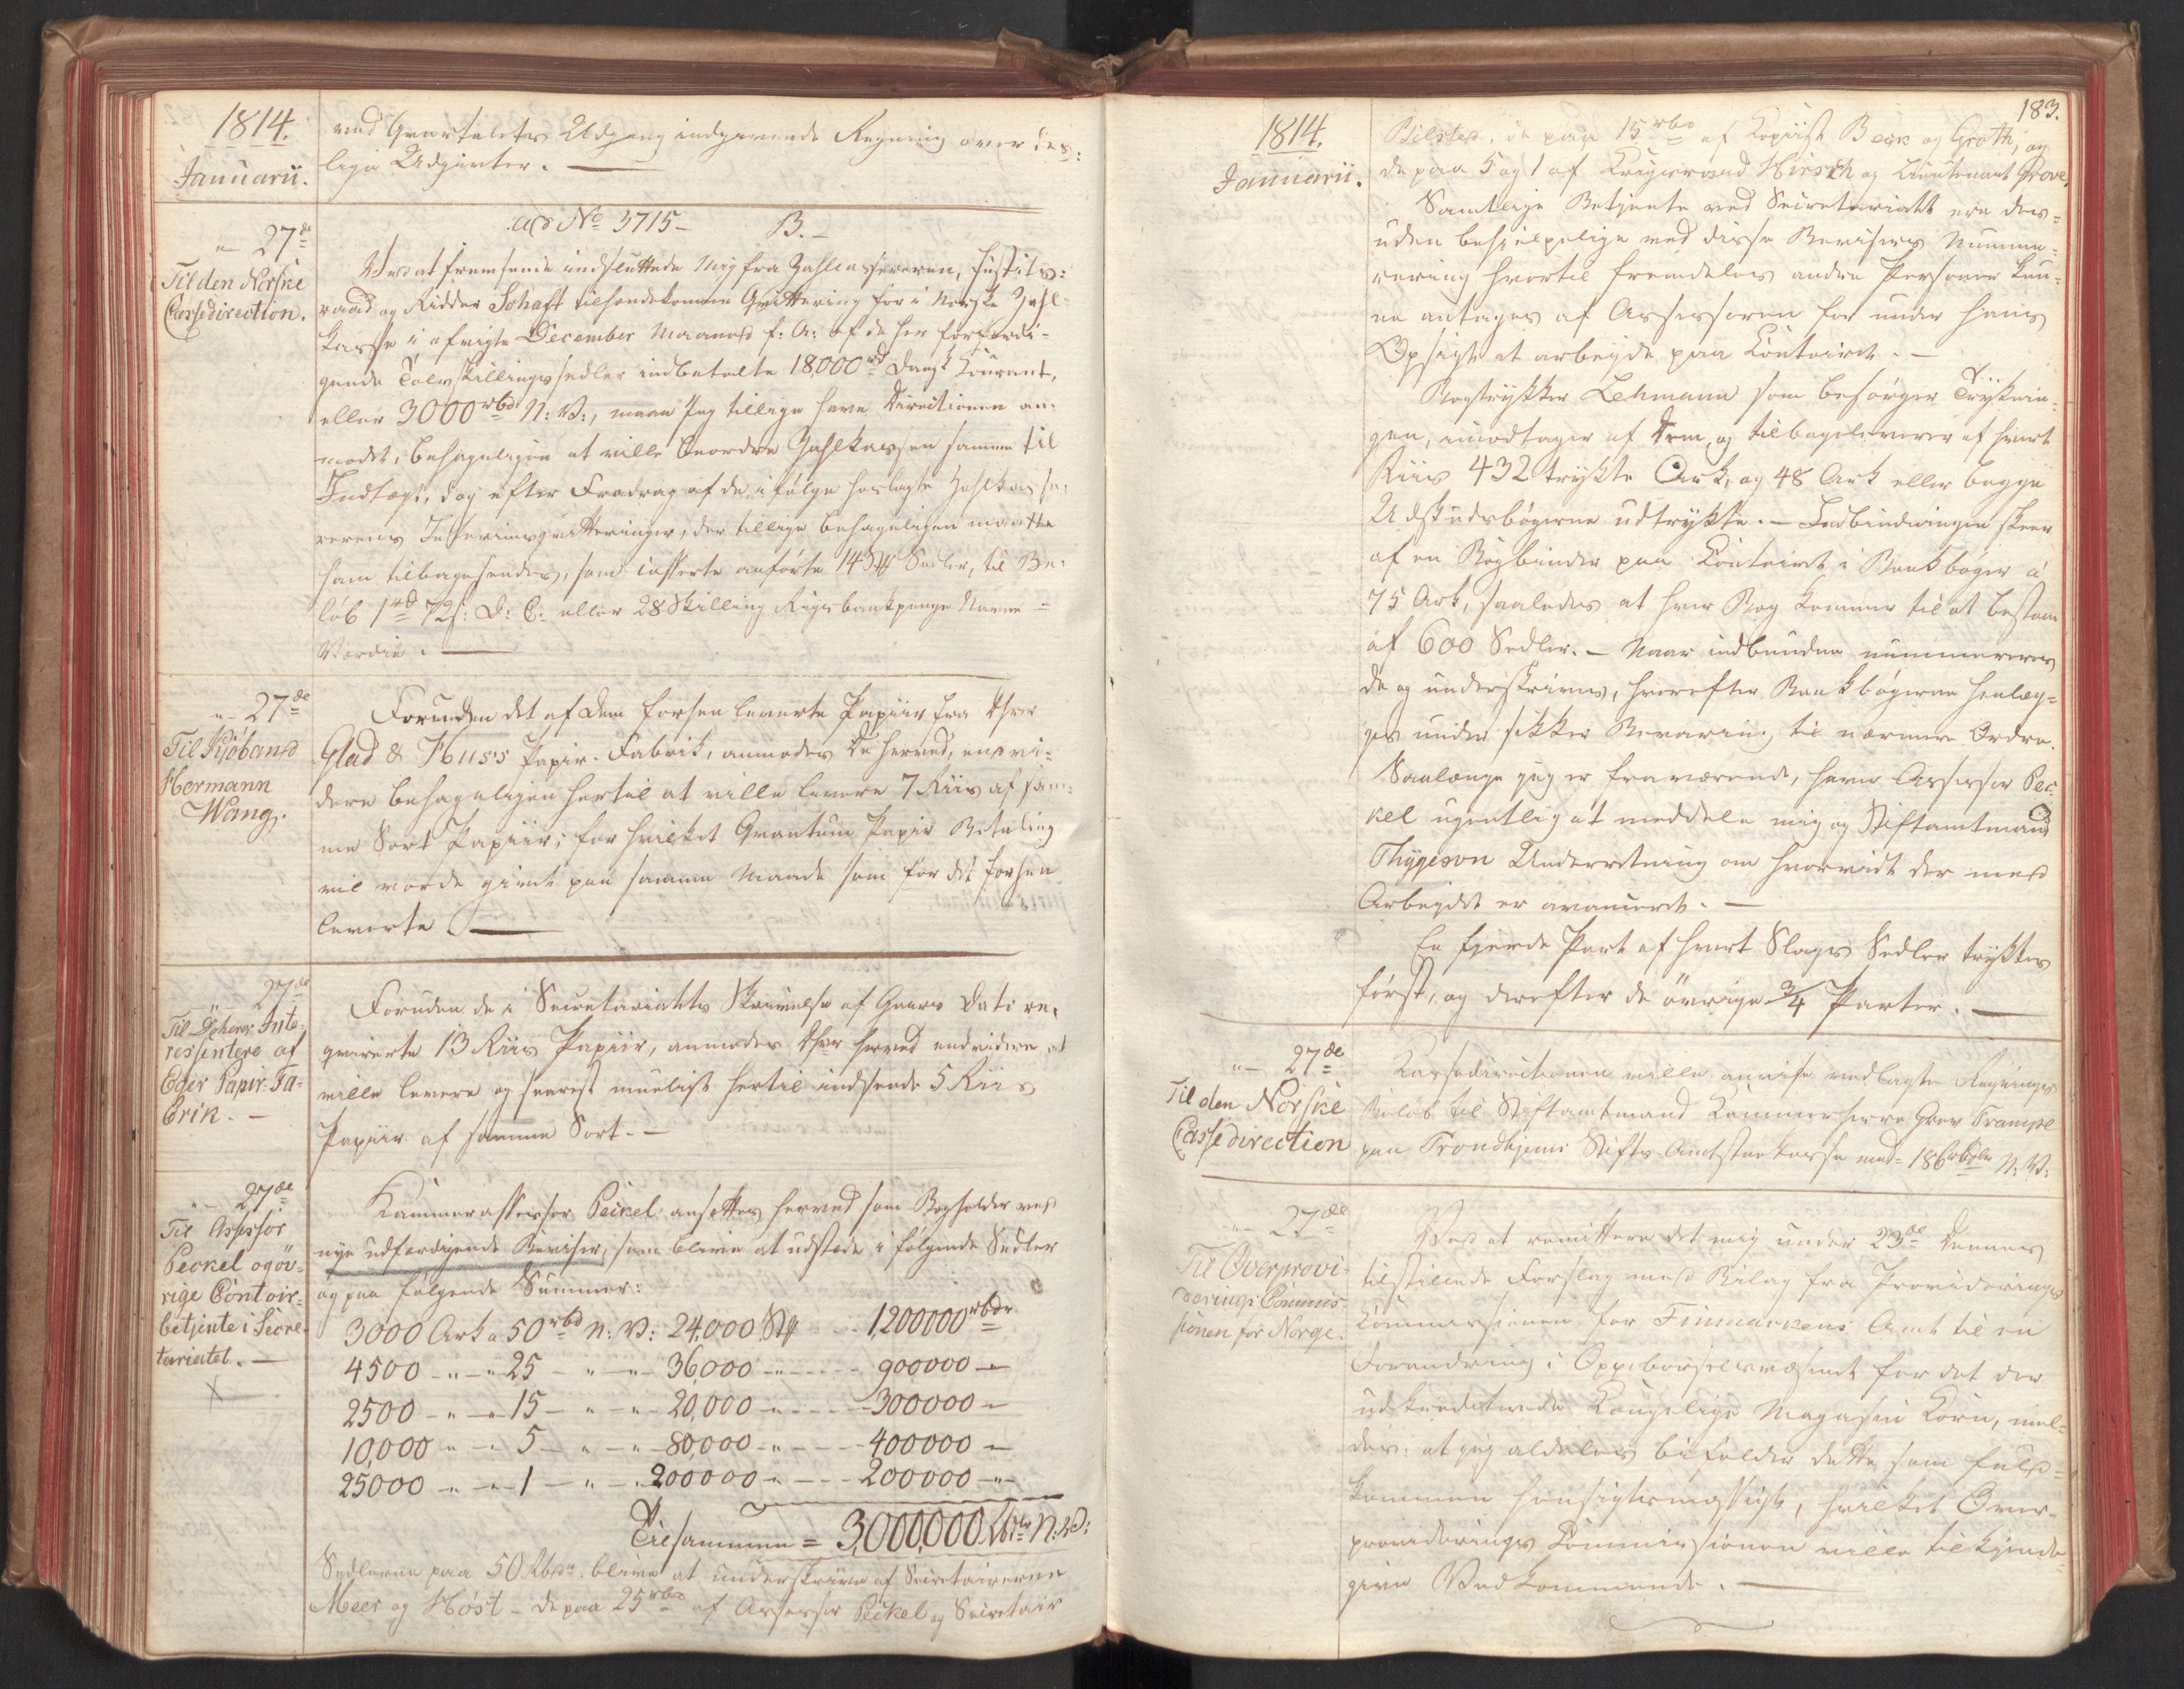 1814.
Januarii.
ved Qvartalets Udgang indgivende Regning over des:
lige Udgivter. —
"- 27de
Til den Norske
Cassedirection.
ad No 3715- B.-
Ved at fremsende indsluttede mig fra Zahlcassereren, Justits:
raad og Ridder Schaft tilhændekomne Qvittering for i Norske Zahl-
kasse i afvigte December Maaned f: A: af de her forfærdi-
gende Tolvskillingssedler indbetalte 18,000 rd Dansk Courant,
eller 3000 rbd N: V:, maae jeg tillige have Directionen an-
modet, behageligen at ville beordre Zahlkassen samme til
Indtægt, dog efter Fradrag af de, ifølge hoslagte Zahlkasse-
rerens Interimsqvitteringer, der tillige behageligen maatte
ham tilbagesendes, som casserte anførte 14 Stk Sedler, til Be-
løb 1 rd 72 s: D: C: eller 28 Skilling Rigsbankpenge Navne =
Værdie. —
"- 27de
Til Kjøbmand
Hermann
Wang.
Foruden det af Dem forhen leverte Papiir fra Dhrr
Glad & Huss Papir-Fabrik, anmodes De herved, end vi-
dere behageligen hertil at ville levere 7 Riis af sam-
me Sort Papiir; for hvilket Qvantum Papir Betaling
vil vorde givet paa samme Maade som for det forhen
leverte. —
"- 27de
Til Dherrer Inte-
ressentere af
Eger Papir-Fa-
brik. —
Foruden de i Secretariatets Skrivelse af Gaars Dato re-
qvirerte 13 Riis Papiir, anmodes Dhrr herved endvidere at
ville levere og snarest mueligst hertil indsende 5 Riis
Papiir af samme Sort. —
"- 27de
Til Assessor
Peckel og øv-
rige Contoir-
betjente i Secre-
tariatet. —
X
Kammerassessor Peckel ansettes herved som Bogholder ved
nye udfærdigende Beviser, som blive at udstæde i følgende Sedler
og paa følgende Summer:
3000 Ark a 50 rbd N: V: 24,000 Stk - - 1,200000 rbdr
4500 - " - " 25 - " - " - 36,000 - " - - - 900000 - "
2500 - " - " 15 - " - " - 20,000 - " - - - 300000 - "
10,000 - " - " 5 - " - " - 80,000 - " - - - 400000 - "
25000 - " - " 1 - " - " - 200000 - " - - - 200000 - "
Tilsammen = 3,000,000 Rbdlr N: V:
Sedlerne paa 50 Rbdr blive at underskrive af Secretairerne
Meer og Høst - de paa 25 rbd af Assessor Peckel og Secretair
183.
1814.
Januarii.
Bilsted, de paa 15 rbd af Kopiist Beck og Groth, og
de paa 5 og 1 af Krigsraad Hirsch og Lieutenant Grove,
Samtlige Betjente ved Secretariatet ere des-
uden behjelpelige ved disse Bevisers Numme-
rering hvortil fremdeles andre Personer kun-
ne antages af Assessoren for under hans
Opsigt at arbejde paa Contoiret. —
Bogtrykker Lehmann som besørger Tryknin-
gen, imodtager af Dem, og tilbageleverer af hvert
Riis 432 trykte Ark, og 48 Ark eller begge
Udskudsbøgerne utrykte. — Indbindingen skeer
af en Bogbinder paa Contoiret i Bankbøger a
75 Ark, saaledes at hver Bog kommer til at bestaae
af 600 Sedler. — Naar indbundne nummereres
de og underskrives, hvorefter Bankbøgerne henlæg-
ges under sikker Bevaring til nærmere Ordre.
Saalænge jeg er fraværende, haver Assessor Pec-
kel ugentlig at meddele mig og Stiftamtmand
Thygeson Underretning om hvorvidt der med
Arbejdet er avanceret. —
En fjerde Part af hvert Slags Sedler trykkes
først, og derefter de øvrige 3/4 Parter. —
"- 27de
Til den Norske
Cassedirection
Kassedirectionen ville anvise vedlagte Regnings
Beløb til Stiftamtmand Kammerherre Grev Trampe
paa Trondhjems Stifts-Amtstuekasse med 186 rbdlr N: V:
"- 27de
Til Overprovi-
derings Commis-
sionen for Norge.
Ved at remittere det mig under 23de dennes
tilstillede Forslag med Bilag fra Providerings
Commissionen for Finmarkens Amt til en
Forandring i Oppebørselsvæsenet for det der
udkreditterede Kongelige Magasin Korn, mel-
des: at jeg aldeles bifalder dette som fuld-
kommen hensigtsmæssigt, hvilket Over-
provideringscommissionen ville tilkjende-
give Vedkommende. —